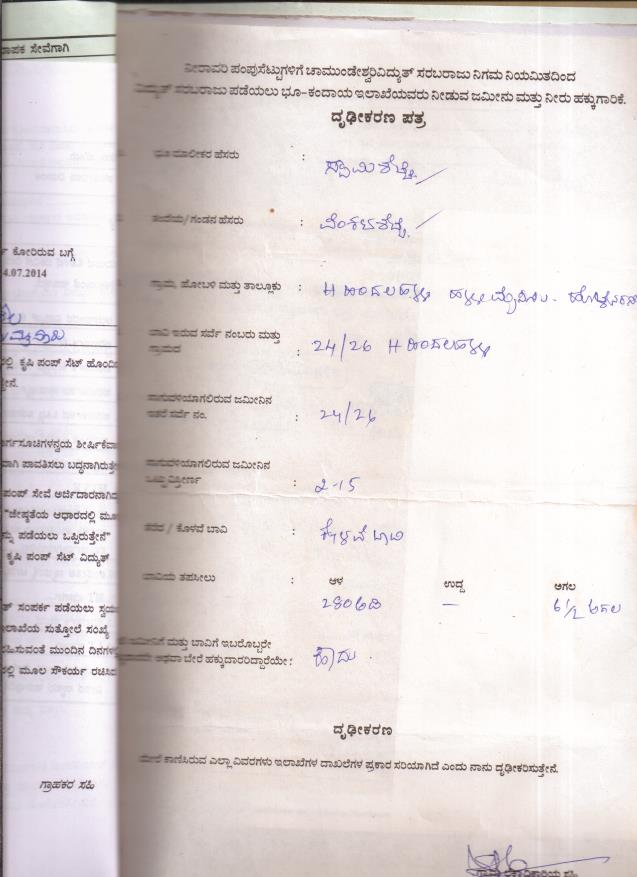 ಾಪಕ ಸೇವೆಗಾಗಿ
ಕೋರಿರುವ ಬಗ್ಗೆ
4.07.2014
ಲ್ಲಿ ಕೃಷಿ ಪಂಪ್ ಸೆಟ್ ಹೊಂದಿ
ತ್ತೇನೆ.
ರ್ಗಸೂಚಿಗಳನ್ವಯ ಶೀರ್ಷಿಕೆ
ವಾಗಿ ಪಾವತಿಸಲು ಬದ್ಧನಾಗಿರುತ್ತೇ
ಪಂಪ್ ಸೇವೆ ಅರ್ಜಿದಾರನಾಗಿ
"ಜೇಷ್ಠತೆಯ ಆಧಾರದಲ್ಲಿ ಮೂ
ನ್ನು ಪಡೆಯಲು ಒಪ್ಪಿರುತ್ತೇನೆ"
ಕೃಷಿ ಪಂಪ್ ಸೆಟ್ ವಿದ್ಯುತ್
ತ್ ಸಂಪರ್ಕ ಪಡೆಯಲು ಸ್ವಯ
ಲಾಖೆಯ ಸುತ್ತೋಲೆ ಸಂಖ್ಯೆ
ರಹಿಸುವಂತೆ ಮುಂದಿನ ದಿನಗಳ
ರಲ್ಲಿ ಮೂಲ ಸೌಕರ್ಯ ರಚಿಸಿ
ಗ್ರಾಹಕರ ಸಹಿ
ನೀರಾವರಿ ಪಂಪುಸೆಟ್ಟುಗಳಿಗೆ ಚಾಮುಂಡೇಶ್ವರಿವಿದ್ಯುತ್ ಸರಬರಾಜು ನಿಗಮ ನಿಯಮಿತದಿಂದ
ವಿದ್ಯುತ್ ಸರಬರಾಜು ಪಡೆಯಲು ಭೂ-ಕಂದಾಯ ಇಲಾಖೆಯವರು ನೀಡುವ ಜಮೀನು ಮತ್ತು ನೀರು ಹಕ್ಕುಗಾರಿಕೆ.
ದೃಢೀಕರಣ ಪತ್ರ
ಭೂ ಮಾಲೀಕರ ಹೆಸರು : ಸ್ವಾಮಿಶೆಟ್ಟಿ
ತಂದೆಯ/ಗಂಡನ ಹೆಸರು : ವೆಂಕಟಶೆಟ್ಟಿ
ಗ್ರಾಮ, ಹೋಬಳಿ ಮತ್ತು ತಾಲ್ಲೂಕು :
ಬಾವಿ ಇರುವ ಸರ್ವೆ ನಂಬರು ಮತ್ತು
ಗ್ರಾಮದ : 24/26
ಸಾಗುವಳಿಯಾಗಲಿರುವ ಜಮೀನಿನ
ಇತರೆ ಸರ್ವೆ ನಂ. : 24/26
ಸಾಗುವಳಿಯಾಗಲಿರುವ ಜಮೀನಿನ
ಒಟ್ಟು ವಿಸ್ತೀರ್ಣ : 2-15
ತೆರೆದ / ಕೊಳವೆ ಬಾವಿ : ಕೊಳವೆ ಬಾವಿ
ಬಾವಿಯ ತಪಸೀಲು : ಆಳ ಉದ್ದ ಅಗಲ
280 ಅಡಿ — 6 1/2 ಅಗಲ
ಜಮೀನಿಗೆ ಮತ್ತು ಬಾವಿಗೆ ಇಬರೊಬ್ಬರೇ
ಅಥವಾ ಬೇರೆ ಹಕ್ಕುದಾರರಿದ್ದಾರೆಯೇ : ಹೌದು .
ದೃಢೀಕರಣ
ಮೇಲೆ ಕಾಣಿಸಿರುವ ಎಲ್ಲಾ ವಿವರಗಳು ಇಲಾಖೆಗಳ ದಾಖಲೆಗಳ ಪ್ರಕಾರ ಸರಿಯಾಗಿದೆ ಎಂದು ನಾನು ದೃಢೀಕರಿಸುತ್ತೇನೆ.